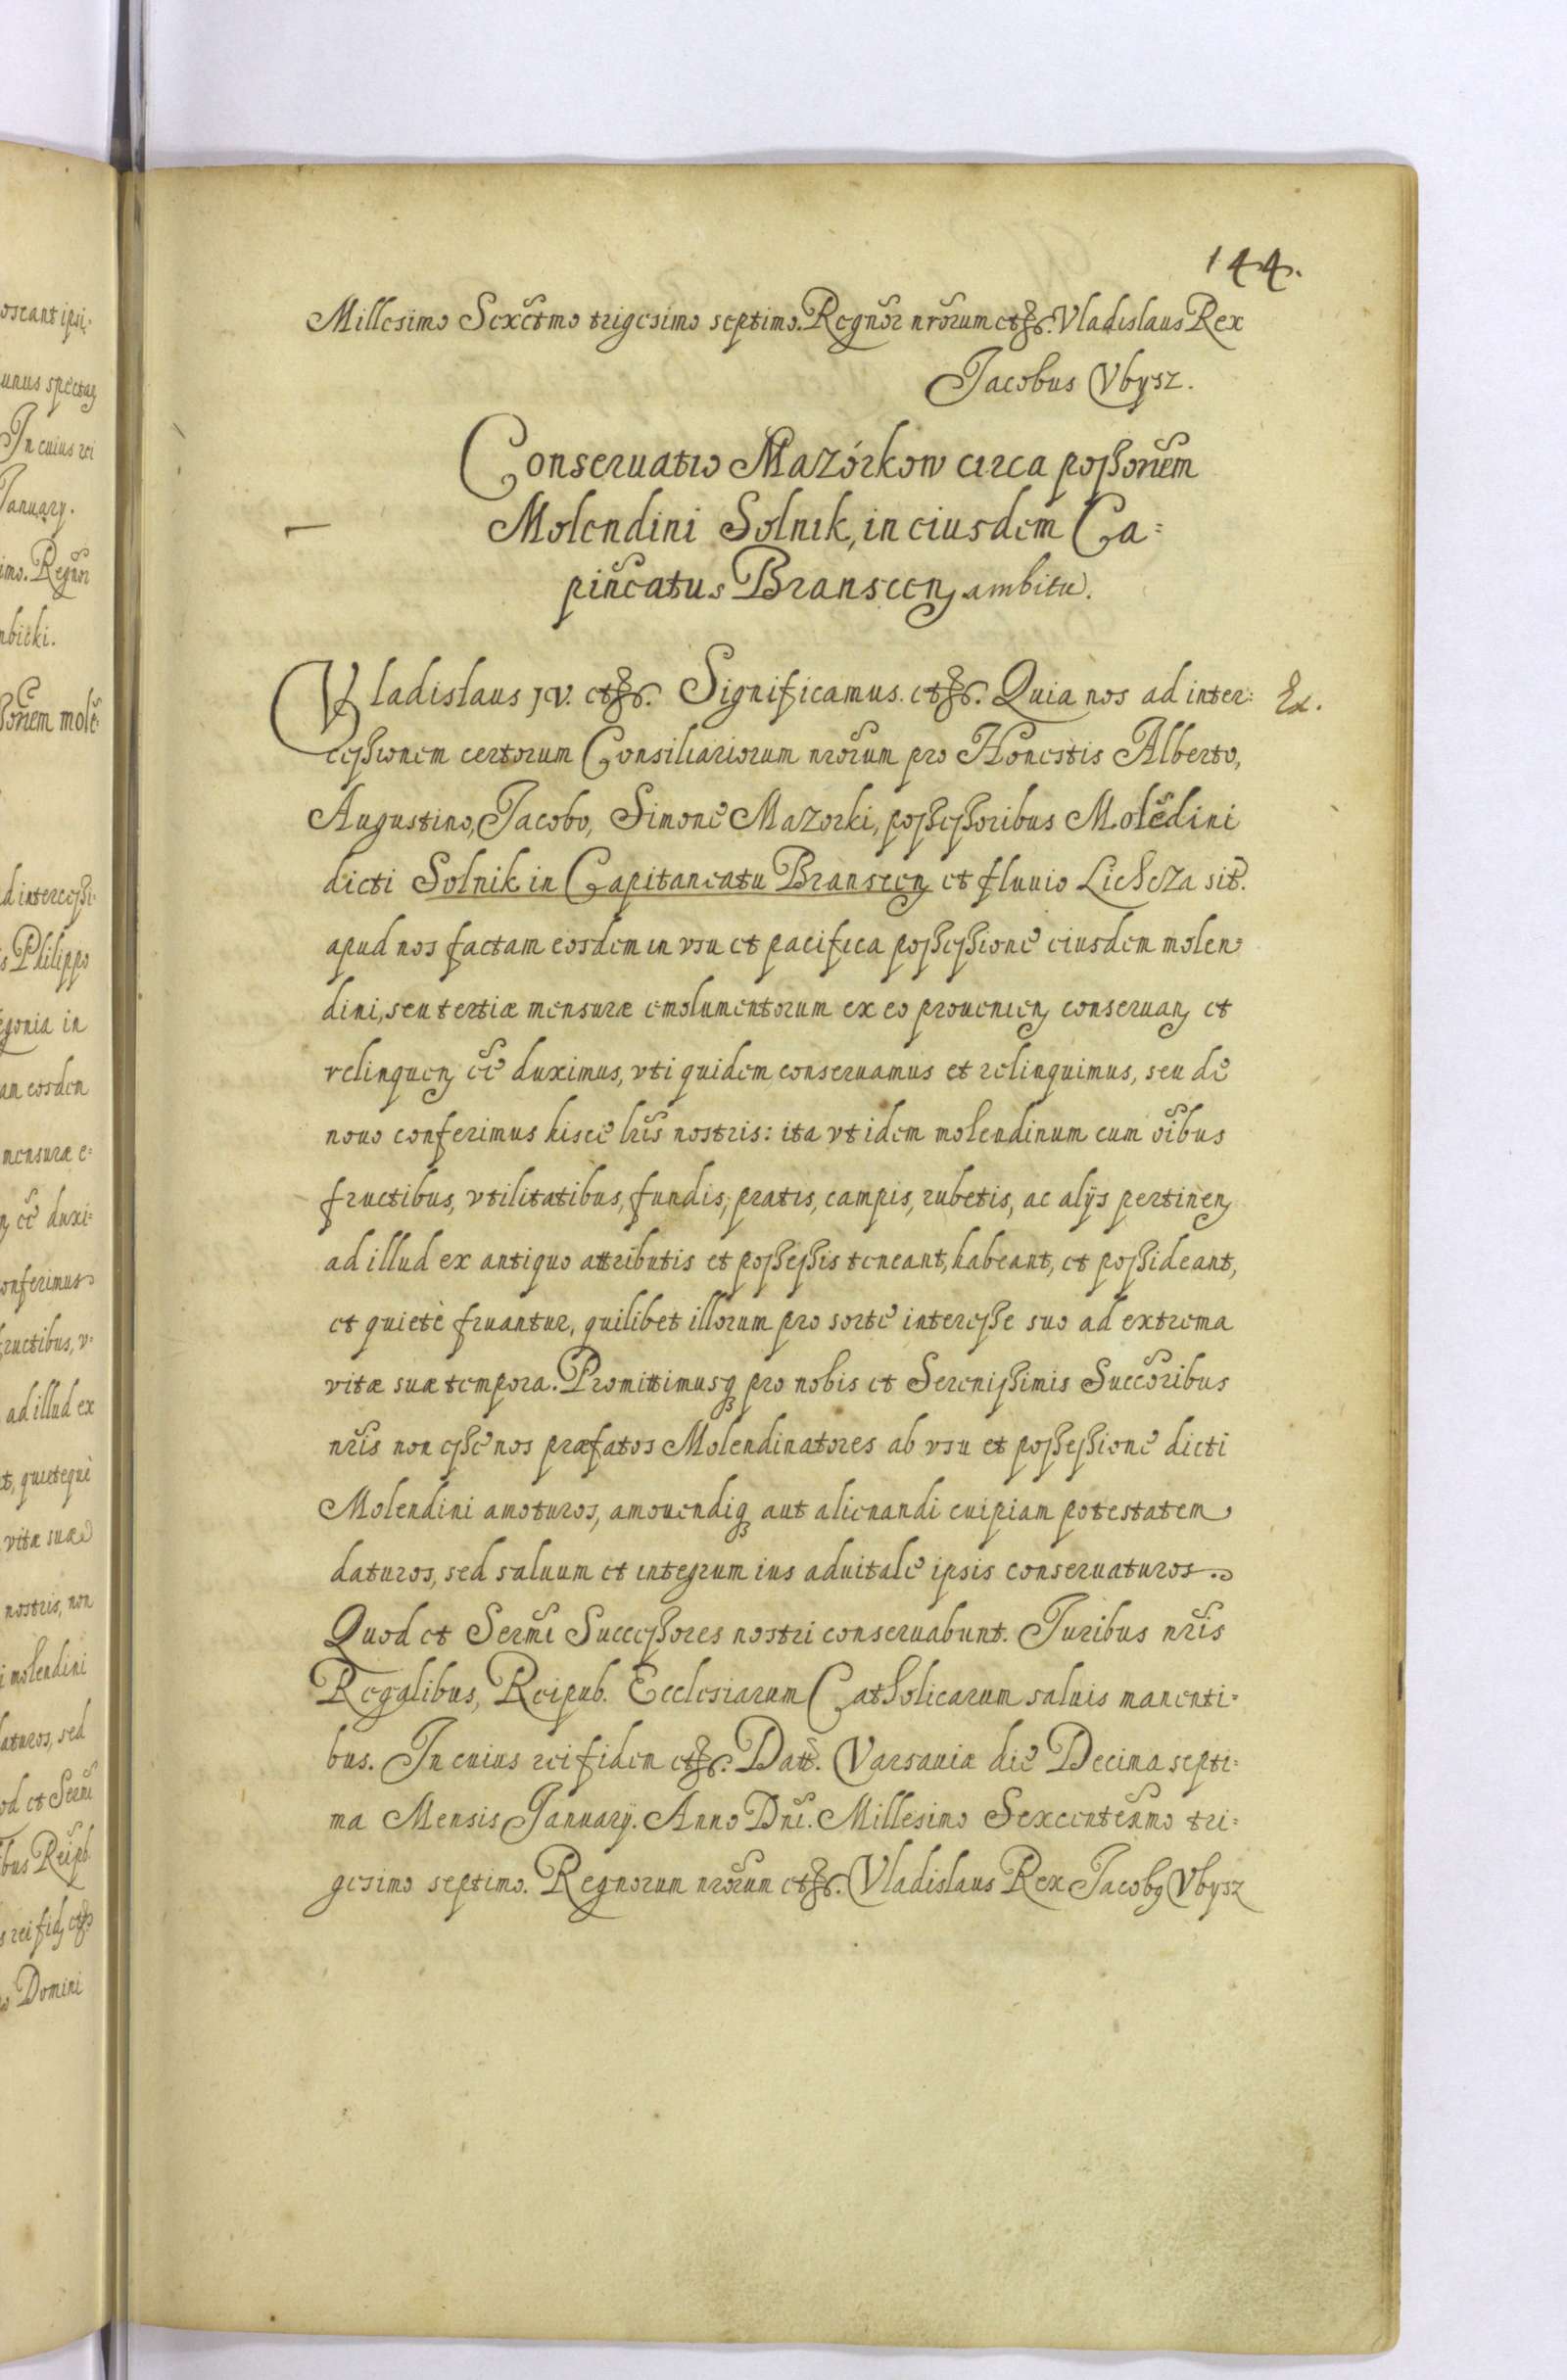 144.
Millesimo Sexctmo trigesimo septimo. Regnor nrorum etc. Vladislaus Rex
Jacobus Vbysz.
Conseruatio Mazórkow circa possonem
Molendini Solnik, in eiusdem Ca=
pitncatus Branscen ambitu.
Vladislaus JV. etc. Significamus. etc. Quia nos ad inter=
cessionem certorum Consiliariorum nrorum pro Honestis Alberto,
Augustino, Jacobo, Simone Mazorki, possessoribus Moledini
dicti Solnik in Capitaneatu Branscen et fluuio Lichcza sit.
apud nos factam eosdem in vsu et pacifica possessione eiusdem molen
dini, seu tertiæ mensuræ emolumentorum ex eo prouenien conseruan et
relinquen ee duximus, vti quidem conseruamus et relinquimus, seu de
nouo conferimus hisce lris nostris: ita vt idem molendinum cum oibus
fructibus, vtilitatibus, fundis, pratis, campis, rubetis, ac alijs pertinen
ad illud ex antiquo attributis et possessis teneant, habeant, et possideant,
et quietè fruantur, quilibet illorum pro sorte interesse suo ad extrema
vitæ suæ tempora. Promittimusq pro nobis et Serenissimis Succoribus
nris non esse nos præfatos Molendinatores ab vsu et possessione dicti
Molendini amoturos, amouendiq aut alienandi cuipiam potestatem
daturos, sed saluum et integrum ius aduitale ipsis conseruaturos.
Quod et Sermi Successores nostri conseruabunt. Juribus nris
Regalibus, Reipub. Ecclesiarum Catholicarum saluis manenti=
bus. In cuius rei fidem etc. Datt. Varsauiæ die Decima septi=
ma Mensis Januarij. Anno Dni. Millesimo Sexcentesmo tri=
gesimo septimo. Regnorum nrorum etc. Vladislaus Rex Jacobq Vbysz